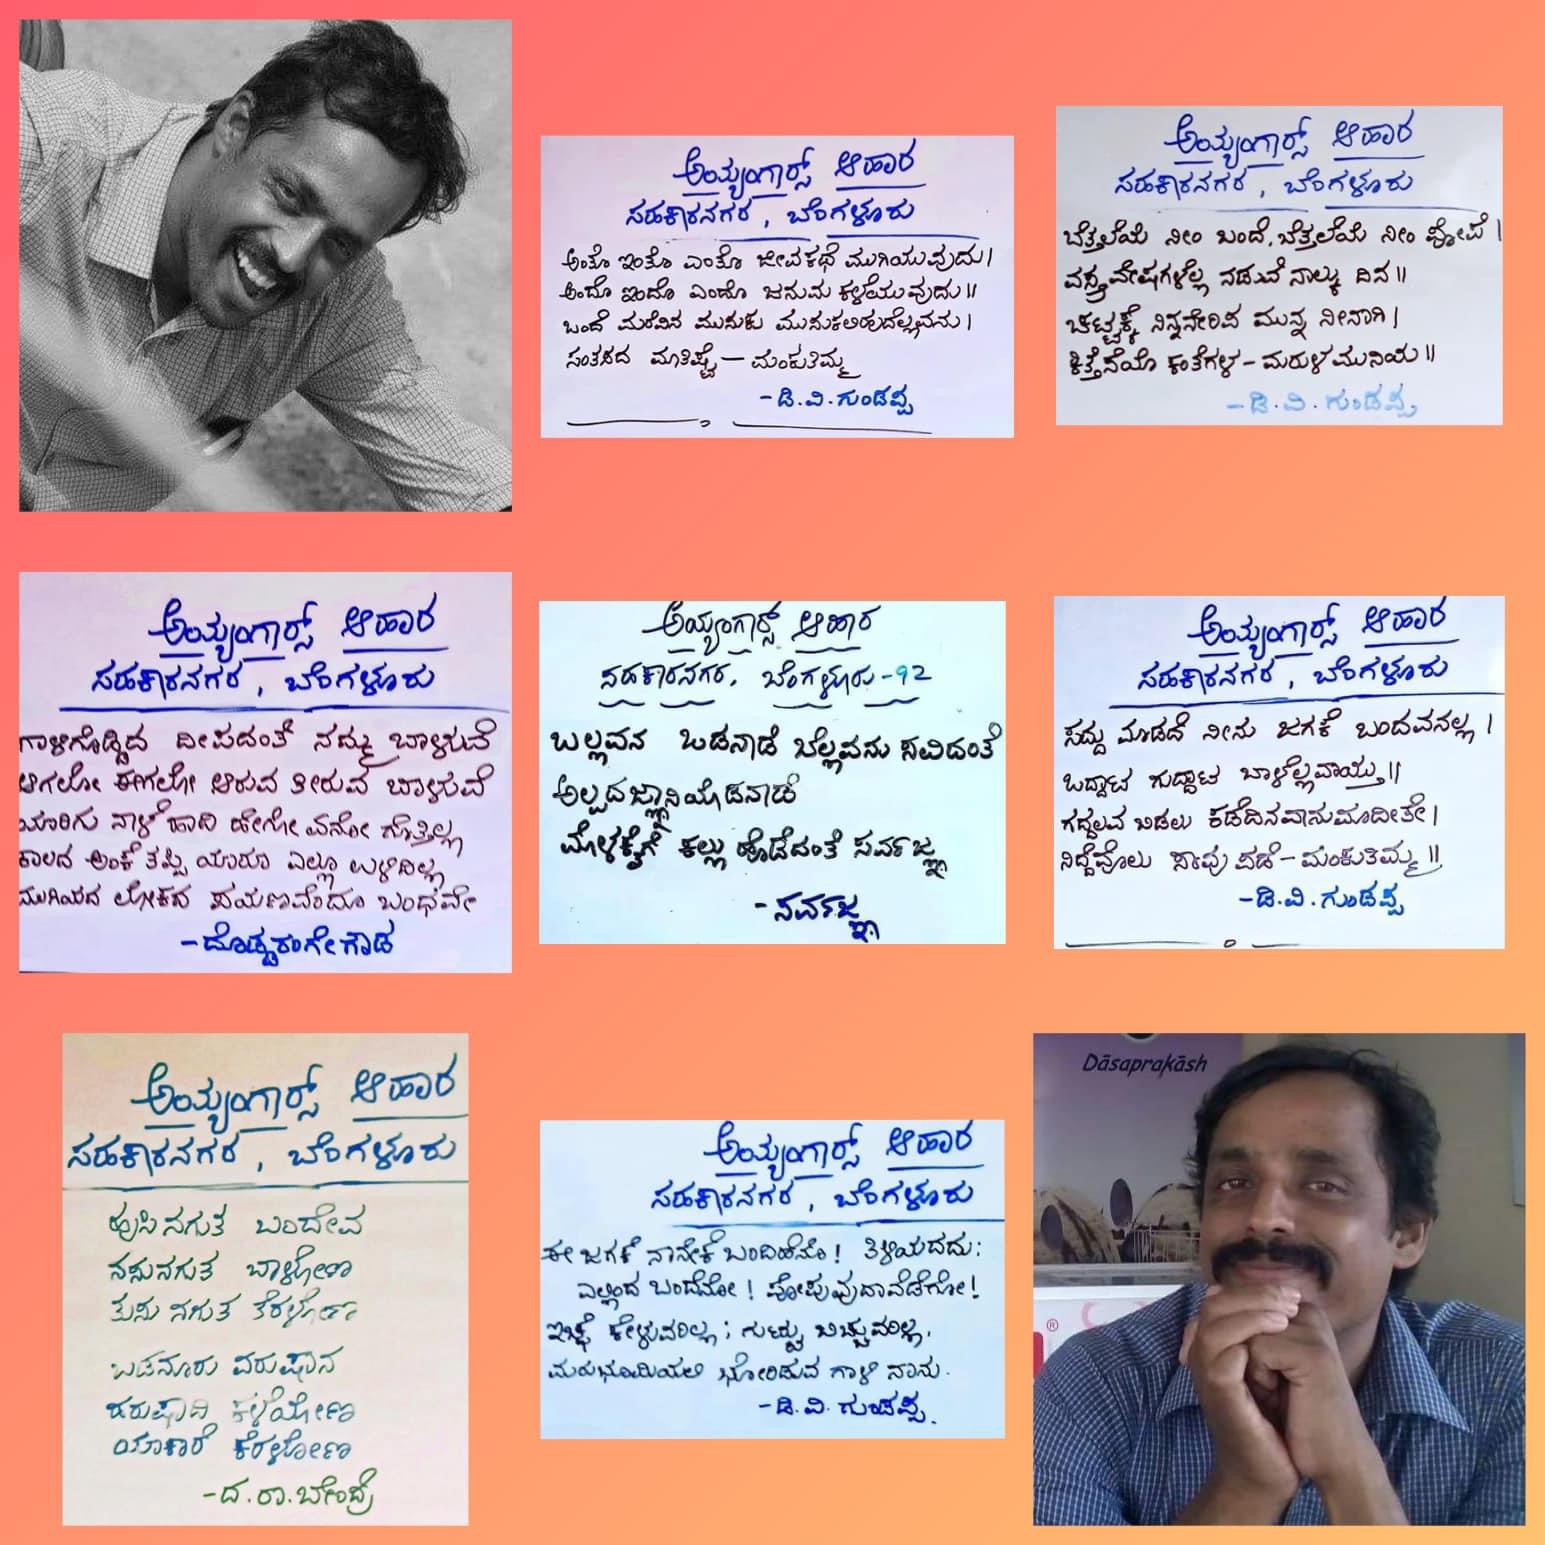 ಅಯ್ಯಂಗಾರ್ಸ್ ಆಹಾರ
ಸಹಕಾರನಗರ, ಬೆಂಗಳೂರು
ಅಂತೂ ಇಂತೂ ಎಂತೊ ಜೀವಕಥೆ ಮುಗಿಯುವುದು।
ಅಂದೊ ಇಂದೊ ಎಂದೊ ಜನುಮ ಕಳೆಯುವುದು॥
ಒಂದೆ ಮರೆವಿನ ಮುಸುಕು ಮುಸುಕಲಿಹುದೆಲ್ಲವನು।
ಸಂತಸದ ಮಾತಿಷ್ಟೆ – ಮಂಕುತಿಮ್ಮ
- ಡಿ.ವಿ.ಗುಂಡಪ್ಪ
ಅಯ್ಯಂಗಾರ್ಸ್ ಆಹಾರ
ಸಹಕಾರನಗರ, ಬೆಂಗಳೂರು
ಬೆತ್ತಲೆಯೆ ನೀಂ ಬಂದೆ, ಬೆತ್ತಲೆಯೆ ನೀಂ ಪೋಪೆ।
ವಸ್ತ್ರವೇಷಗಳೆಲ್ಲ ನಡುವೆ ನಾಲ್ಕು ದಿನ॥
ಚಟ್ಟಕ್ಕೆ ನಿನ್ನನೇರಿಪ ಮುನ್ನ ನೀನಾಗಿ।
ಕಿತ್ತೆಸೆಯೊ ಕಂತೆಗಳ – ಮರುಳ ಮುನಿಯ॥
- ಡಿ.ವಿ.ಗುಂಡಪ್ಪ
ಅಯ್ಯಂಗಾರ್ಸ್ ಆಹಾರ
ಸಹಕಾರನಗರ, ಬೆಂಗಳೂರು
ಗಾಳಿಗೊಡ್ಡಿದ ದೀಪದಂತೆ ನಮ್ಮ ಬಾಳುವೆ
ಆಗಲೋ ಈಗಲೋ ಆರುವ ತೀರುವ ಬಾಳುವೆ
ಯಾರಿಗು ನಾಳೆ ಹಾದಿ ಹೇಗೋ ಏನೋ ಗೊತ್ತಿಲ್ಲ
ಕಾಲದ ಅಂಕೆ ತಪ್ಪಿ ಯಾರೂ ಎಲ್ಲೂ ಉಳಿದಿಲ್ಲ
ಮುಗಿಯದ ಲೋಕದ ಪಯಣವೆಂದೂ ಬಂಧವೇ
- ದೊಡ್ಡರಂಗೇಗೌಡ
ಅಯ್ಯಂಗಾರ್ಸ್ ಆಹಾರ
ಸಹಕಾರನಗರ, ಬೆಂಗಳೂರು-92
ಬಲ್ಲವನ ಒಡನಾಡೆ ಬೆಲ್ಲವನು ಸವಿದಂತೆ
ಅಲ್ಪದಜ್ಞಾನಿಯೊಡನಾಡೆ
ಮೊಳಕೈಗೆ ಕಲ್ಲು ಹೊಡೆದಂತೆ ಸರ್ವಜ್ಞ
- ಸರ್ವಜ್ಞ
ಅಯ್ಯಂಗಾರ್ಸ್ ಆಹಾರ
ಸಹಕಾರನಗರ, ಬೆಂಗಳೂರು
ಸದ್ದು ಮಾಡದೆ ನೀನು ಜಗಕೆ ಬಂದವನಲ್ಲ।
ಒದ್ದಾಟ ಗುದ್ದಾಟ ಬಾಳೆಲ್ಲವಾಯ್ತು॥
ಗದ್ದಲವ ಬಿಡಲು ಕಡೆದಿನವಾನುಮಾದೀತೇ।
ನಿದ್ದೆವೊಲು ಸಾವು ಪಡೆ – ಮಂಕುತಿಮ್ಮ॥
- ಡಿ.ವಿ.ಗುಂಡಪ್ಪ
ಅಯ್ಯಂಗಾರ್ಸ್ ಆಹಾರ
ಸಹಕಾರನಗರ, ಬೆಂಗಳೂರು
ಹುಸಿನಗುತ ಬಂದೇವ
ನಸುನಗುತ ಬಾಳೋಣ
ತುಸು ನಗುತ ತೆರಳೋಣ
ಬಡನೂರು ವರುಷಾನ
ಹರುಷಾದಿ ಕಳೆಯೋಣ
ಯಾಕಾರೆ ಕೆರಳೋಣ
- ದ.ರಾ.ಬೇಂದ್ರೆ
ಅಯ್ಯಂಗಾರ್ಸ್ ಆಹಾರ
ಸಹಕಾರನಗರ, ಬೆಂಗಳೂರು
ಈ ಜಗಕೆ ನಾನೇಕೆ ಬಂದಿಹೆನೊ! ತಿಳಿಯದದು:
ಎಲ್ಲಿಂದ ಬಂದೆನೋ! ಪೋಪುವುದಾವೆಡೆಗೋ!
ಇಚ್ಛೆ ಕೇಳುವರಿಲ್ಲ; ಗುಟ್ಟು ಬಿಚ್ಚುವರಿಲ್ಲ,
ಮರುಭೂಮಿಯಲಿ ಭೋರಿಡುವ ಗಾಳಿ ನಾನು.
- ಡಿ.ವಿ.ಗುಂಡಪ್ಪ.
Dāsaprakāsh